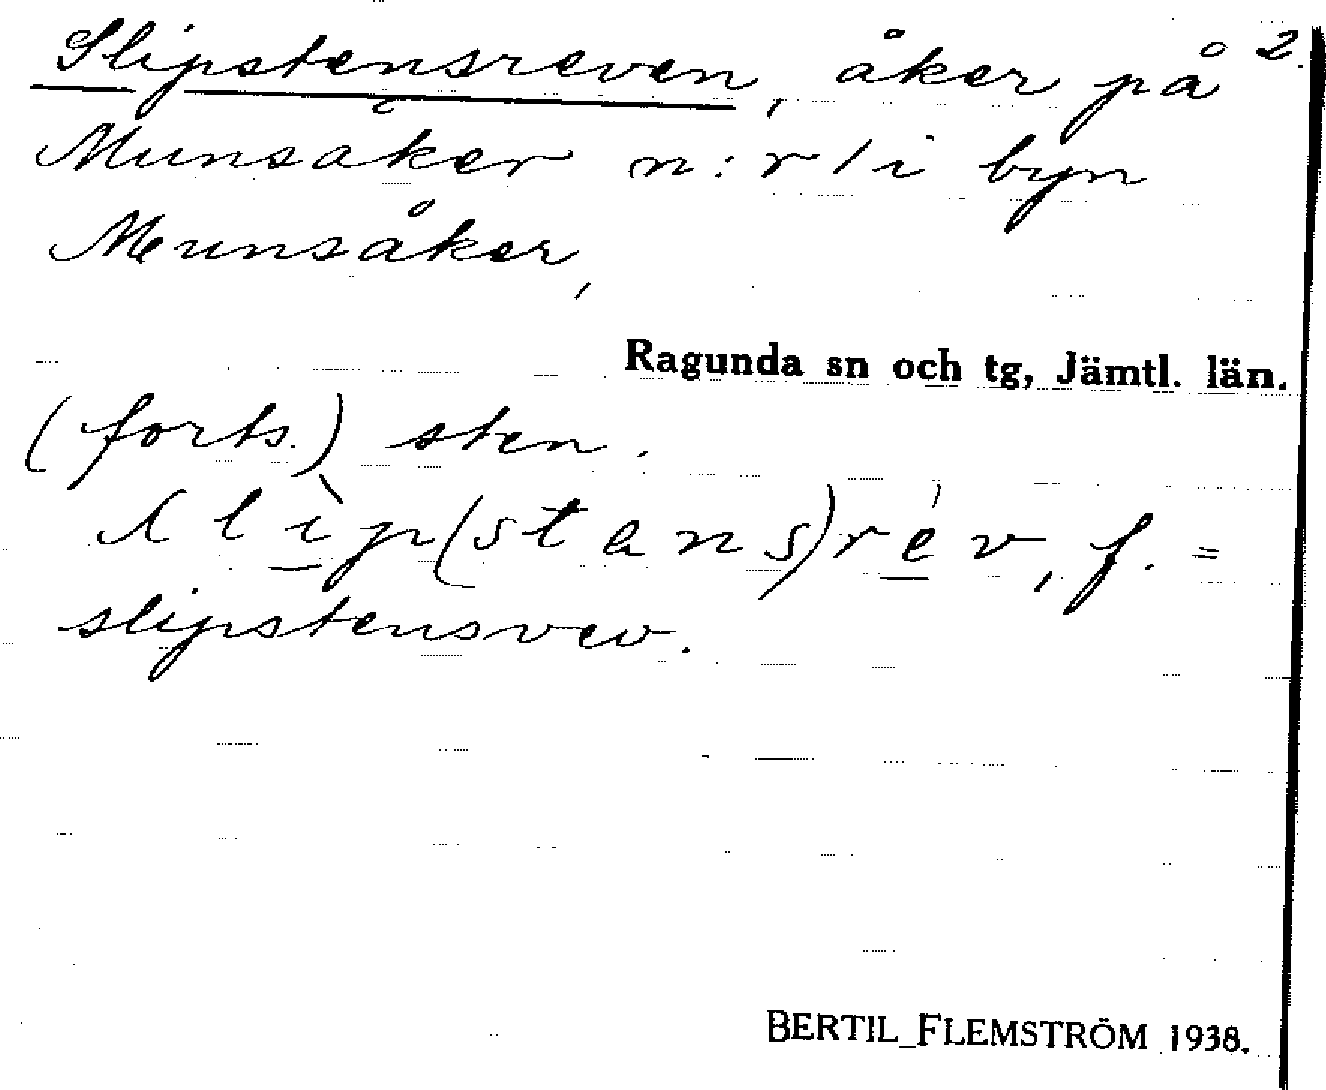 Slipstensreven, åker på 2.
Munsåker n:r 1 i byn
Munsåker,
Ragunda sn och tg, Jämtl. län.
(forts.) sten.
slìp(stens)rév, f. =
slipstensvev.
BERTIL FLEMSTRÖM 1938.